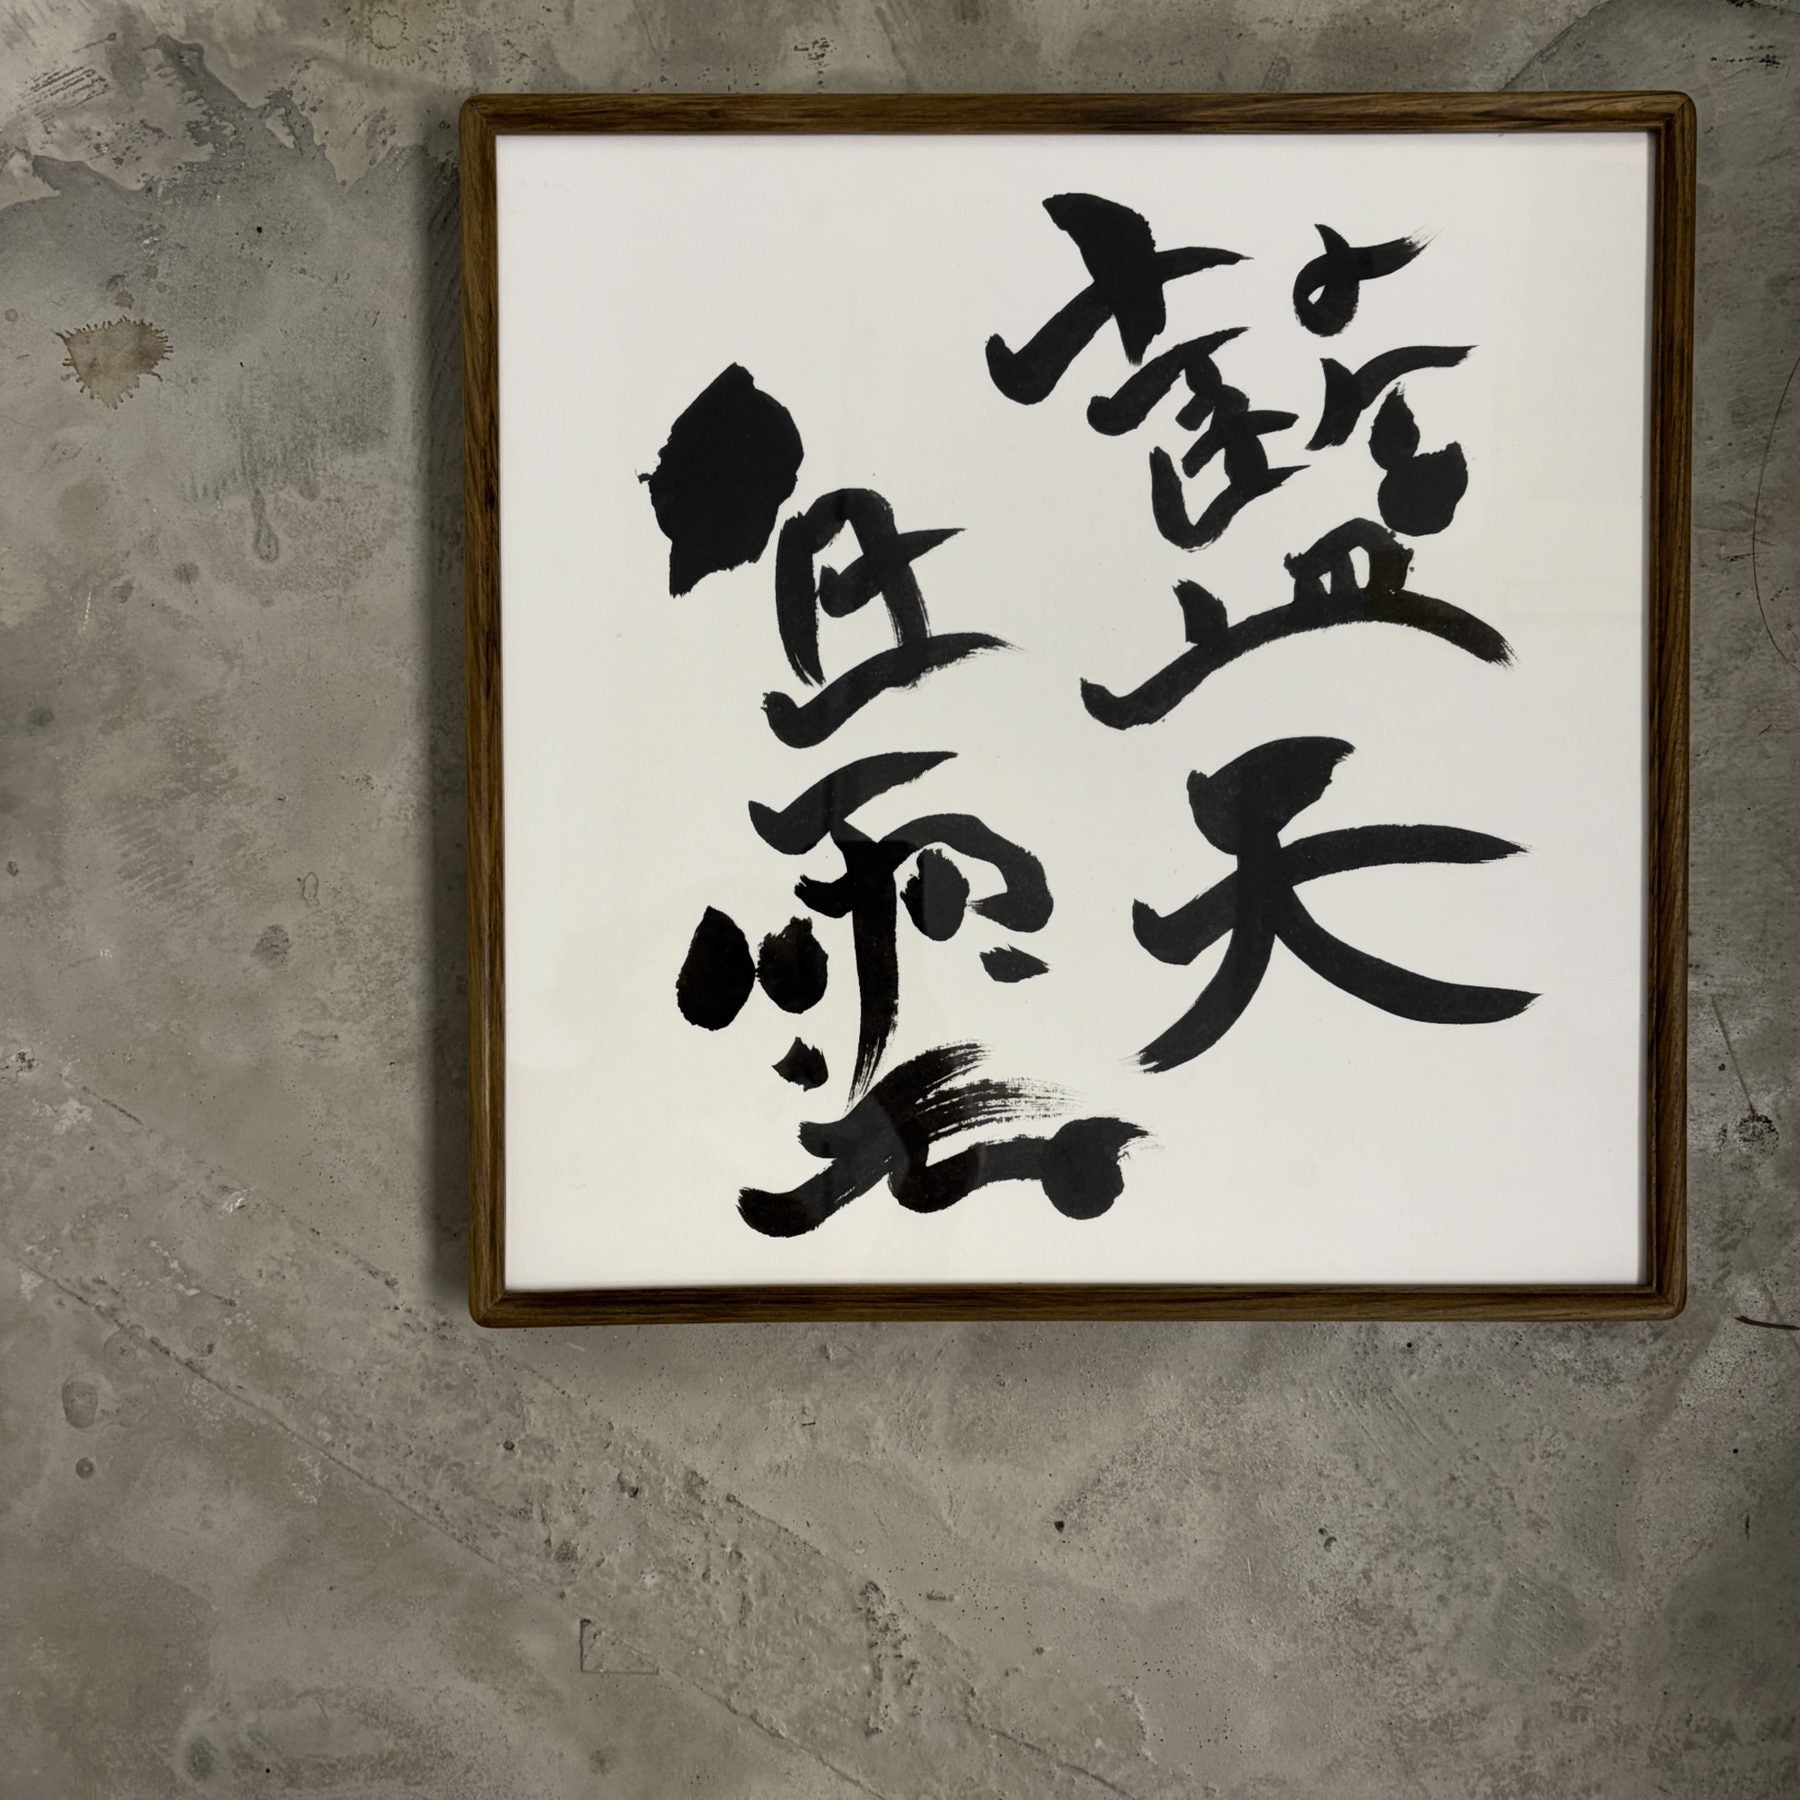 藍天
白雲